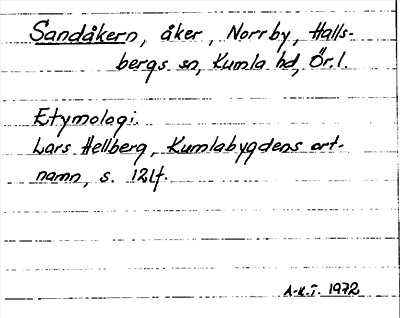 Sandåkern, åker, Norrby, Halls-
bergs sn, Kumla hd, Ör. l.
Etymologi.
Lars Hellberg, Kumlabygdens ort-
namn, s. 124.
A-K.T. 1972